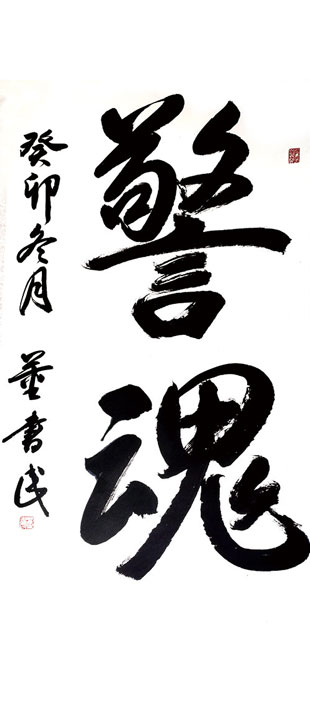 警魂
癸卯冬月 董书民